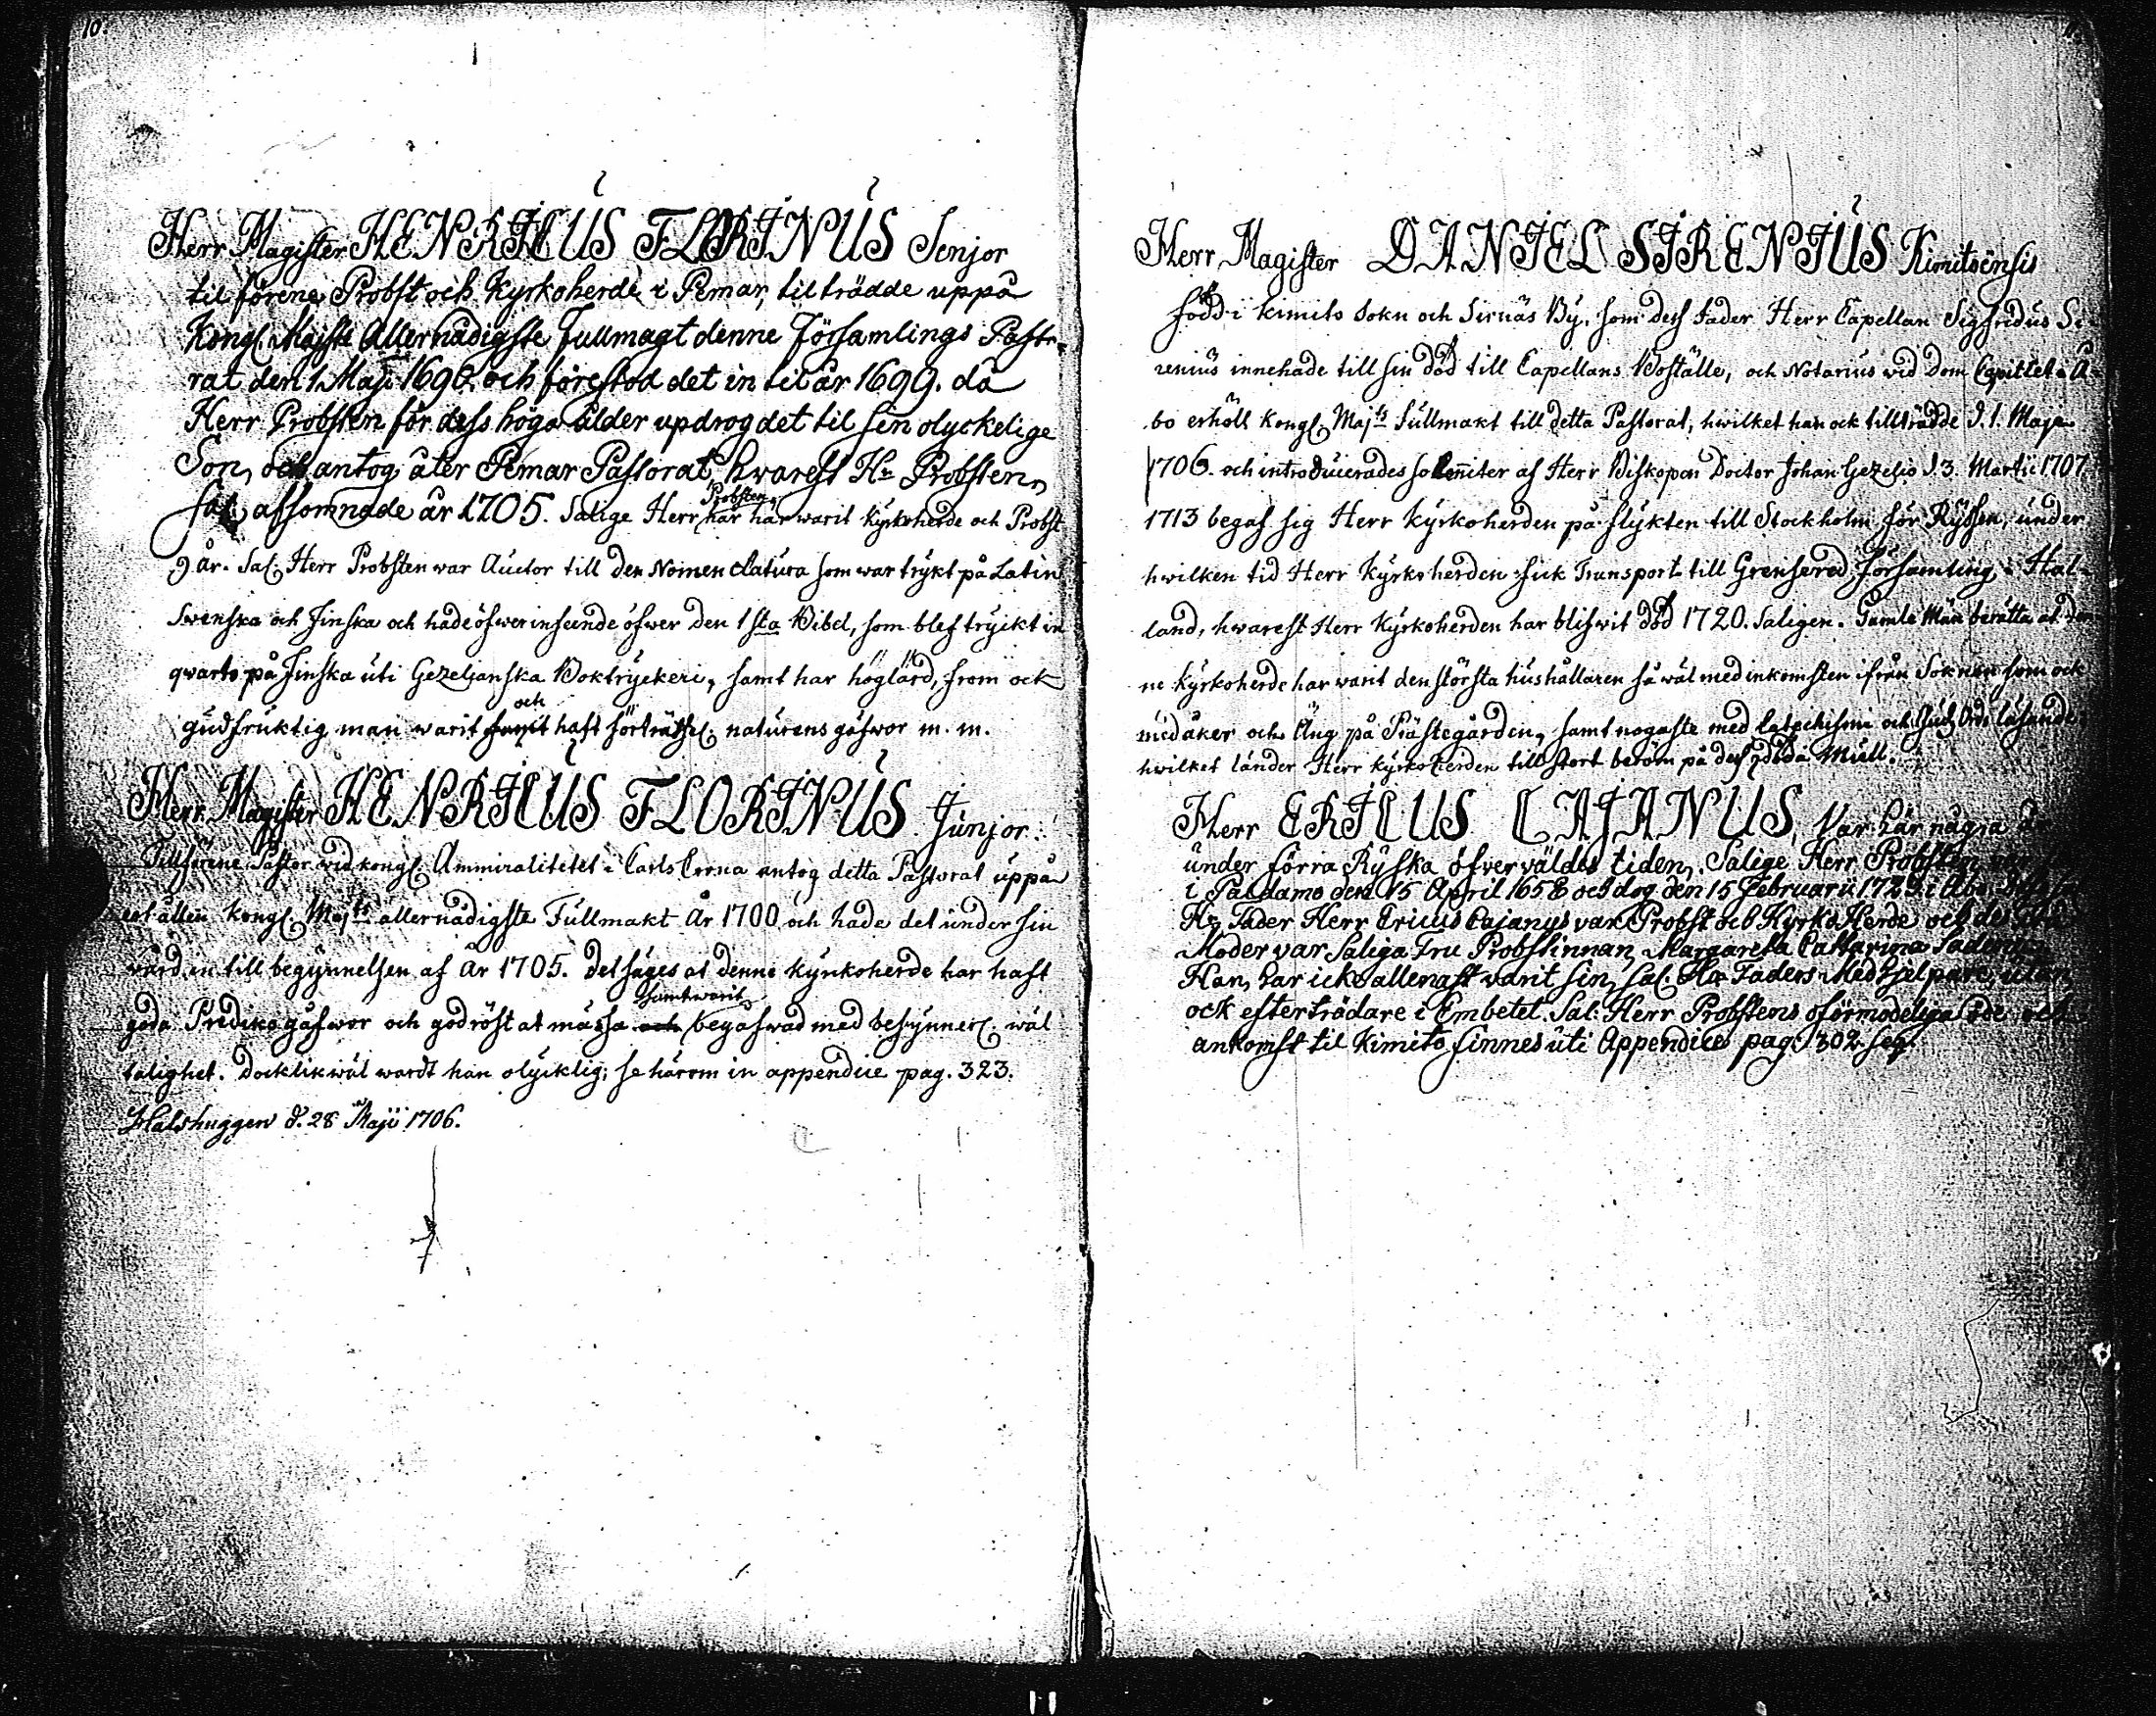 10.
Herr Magister HENRICUS FLORINUS Senjor
til förene Probst och Kyrkoherde i Pemar, til trädde uppå
Kongl. Majste Allernådigste Fullmagt denne Församlings Pasto-
rat den 1 Maji 1690. och förestod det in til år 1699. då
Herr Probsten för dess höga ålder updrog det til sin olyckelige
Son, och antog åter Pemar Pastorat, hvarest Hr Probsten
sal. afsomnade år 1705. Salige Herr Probsten har här warit Kyrkoherde och Probst
9 år. Sal. Herr Probsten war Auctor till den Nomenclatura som war trykt på Latin
Swenska och Finska och hade öfwerinseende öfwer den 1sta Bibel, som blef tryckt in
qvarto på Finska uti Gezelianska Boktryckeri, samt har höglärd, from ock
gudfruktig man warit och haft förträffel. naturens gåfwor m. m.
Herr Magister HENRICUS FLORINUS Junjor.
Tillförene Pastor wid kongl. Ammiralitetet i Carls Crona antog detta Pastorat uppå
erhållen Kongl. Majts allernådigste Fullmakt År 1700 och hade det under sin
wård in till begynnelsen af År 1705. Det säges at denne kyrkoherde har haft
goda Predikogåfwor och god röst at mässa och samt warit begåfwad med besynnerl. wäl
talighet. Docklikwäl wardt han olycklig; se härom in appendice pag. 323.
Halshuggen d. 28 Maji 1706.
Herr Magister DANIEL SIRENIUS Kimitoënsis
född i Kimito Sokn och Sirnäs By, som dess Fader Herr Capellan Sigfridus Si-
renius innehade till sin död till Capellans Boställe, och Notarius wid Dom Capitlet i Å-
bo erhöll Kongl. Majts Fullmakt till detta Pastorat, hwilket han ock tillträdde d. 1. Maji
1706. och introducerades solenniter af Herr Biskopen Doctor Johan Gezelio d. 3. Martii 1707.
1713 begaf sig Herr Kyrkoherden på flykten till Stockholm för Ryssen, under
hwilken tid Herr Kyrkoherden fick Transport till Grensered Församling i Hal-
land, hwarest Herr Kyrkoherden har blifwit död 1720. Saligen. Gamle Män berätta at den-
ne Kyrkoherde har warit den största hushållaren så wäl med inkomsten ifrån Soknen som ock
med åker och Äng på Prästegården, samt nogaste med Catechismi och Guds Ords läsande
hwilket länder Herr Kyrkoherden till stort beröm på dess döda Mull.
Herr ERICUS CAJANUS, Var här några år
under förra Ryska öfverväldes tiden. Salige Herr Probsten
i Paldamo den 15 April 1658 och dog den 15 Februarii 1723 i Åbo.
Hs Fader Herr Ericus Cajanus var Probst och Kyrko Herde och des
Moder var Saliga Fru Probstinnan Margareta Catharina
Han har icke allenast varit sin sal. Hr Faders Medhjelpare, utan
ock efterträdare i Embetet. Sal. Herr Probstens oförmodeliga öde och
ankomst til Kimito finnes uti Appendice pag. 302 seq.
11